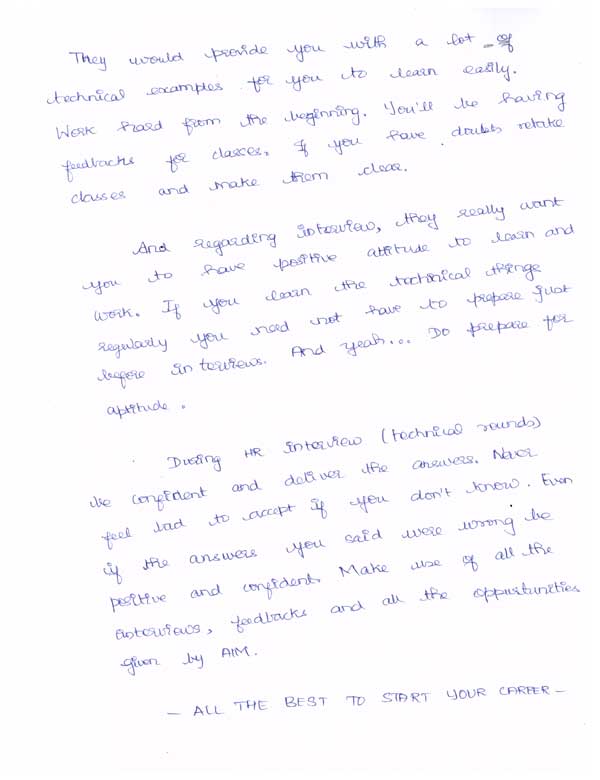 They would provide you with a lot of
technical examples for you to learn easily.
Work hard from the beginning. You'll be having
feedbacks for classes. If you have doubts retake
classes and make them clear.
And regarding interview, they really want
you to have positive attitude to learn and
work. If you learn the technical things
regularly you need not have to prepare just
before interviews. And yeah... Do prepare for
aptitude.
During HR interview (technical rounds)
be confident and deliver the answers. Never
feel bad to accept if you don't know. Even
if the answers you said were wrong be
positive and confident. Make use of all the
interviews, feedbacks and all the oppurtunities
given by AIM.
- ALL THE BEST TO START YOUR CAREER -